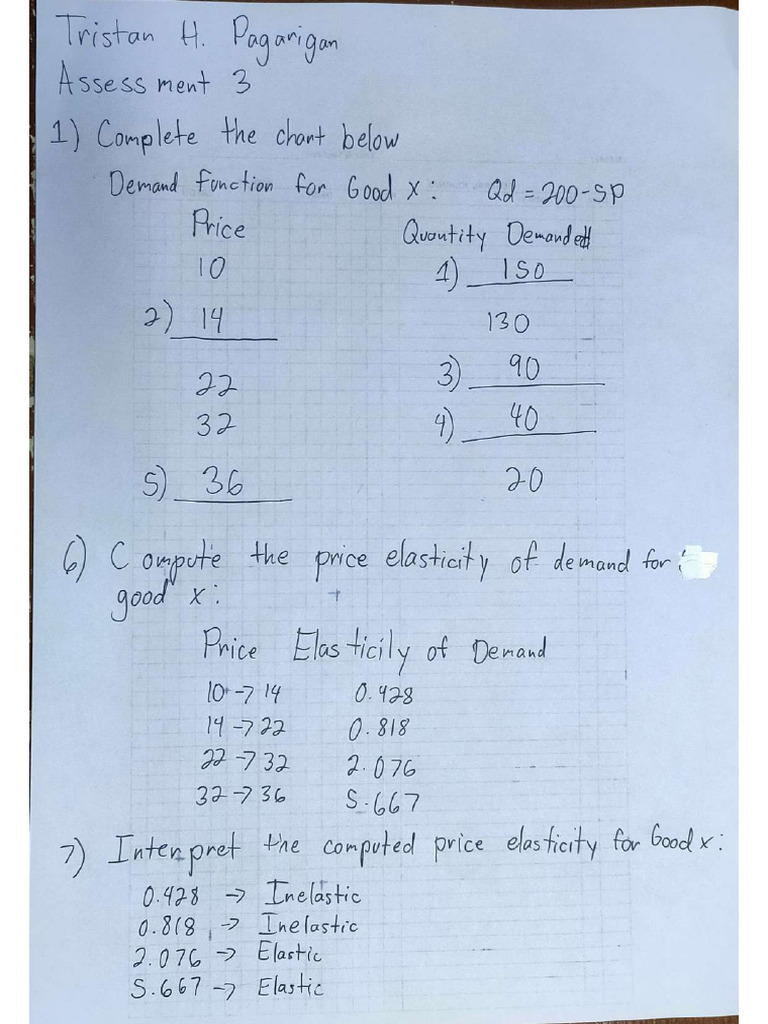 Tristan H. Pagarigan
Assessment 3
1) Complete the chart below
Demand Function for Good x: Qd = 200-5P
Price Quantity Demanded
10 1) 150
2) 14 130
22 3) 90
32 4) 40
5) 36 20
6) Compute the price elasticity of demand for
good x:
Price Elasticily of Demand
10 → 14 0.428
14 → 22 0.818
22 → 32 2.076
32 → 36 5.667
7) Interpret the computed price elasticity for Good x:
0.428 → Inelastic
0.818 → Inelastic
2.076 → Elastic
5.667 → Elastic